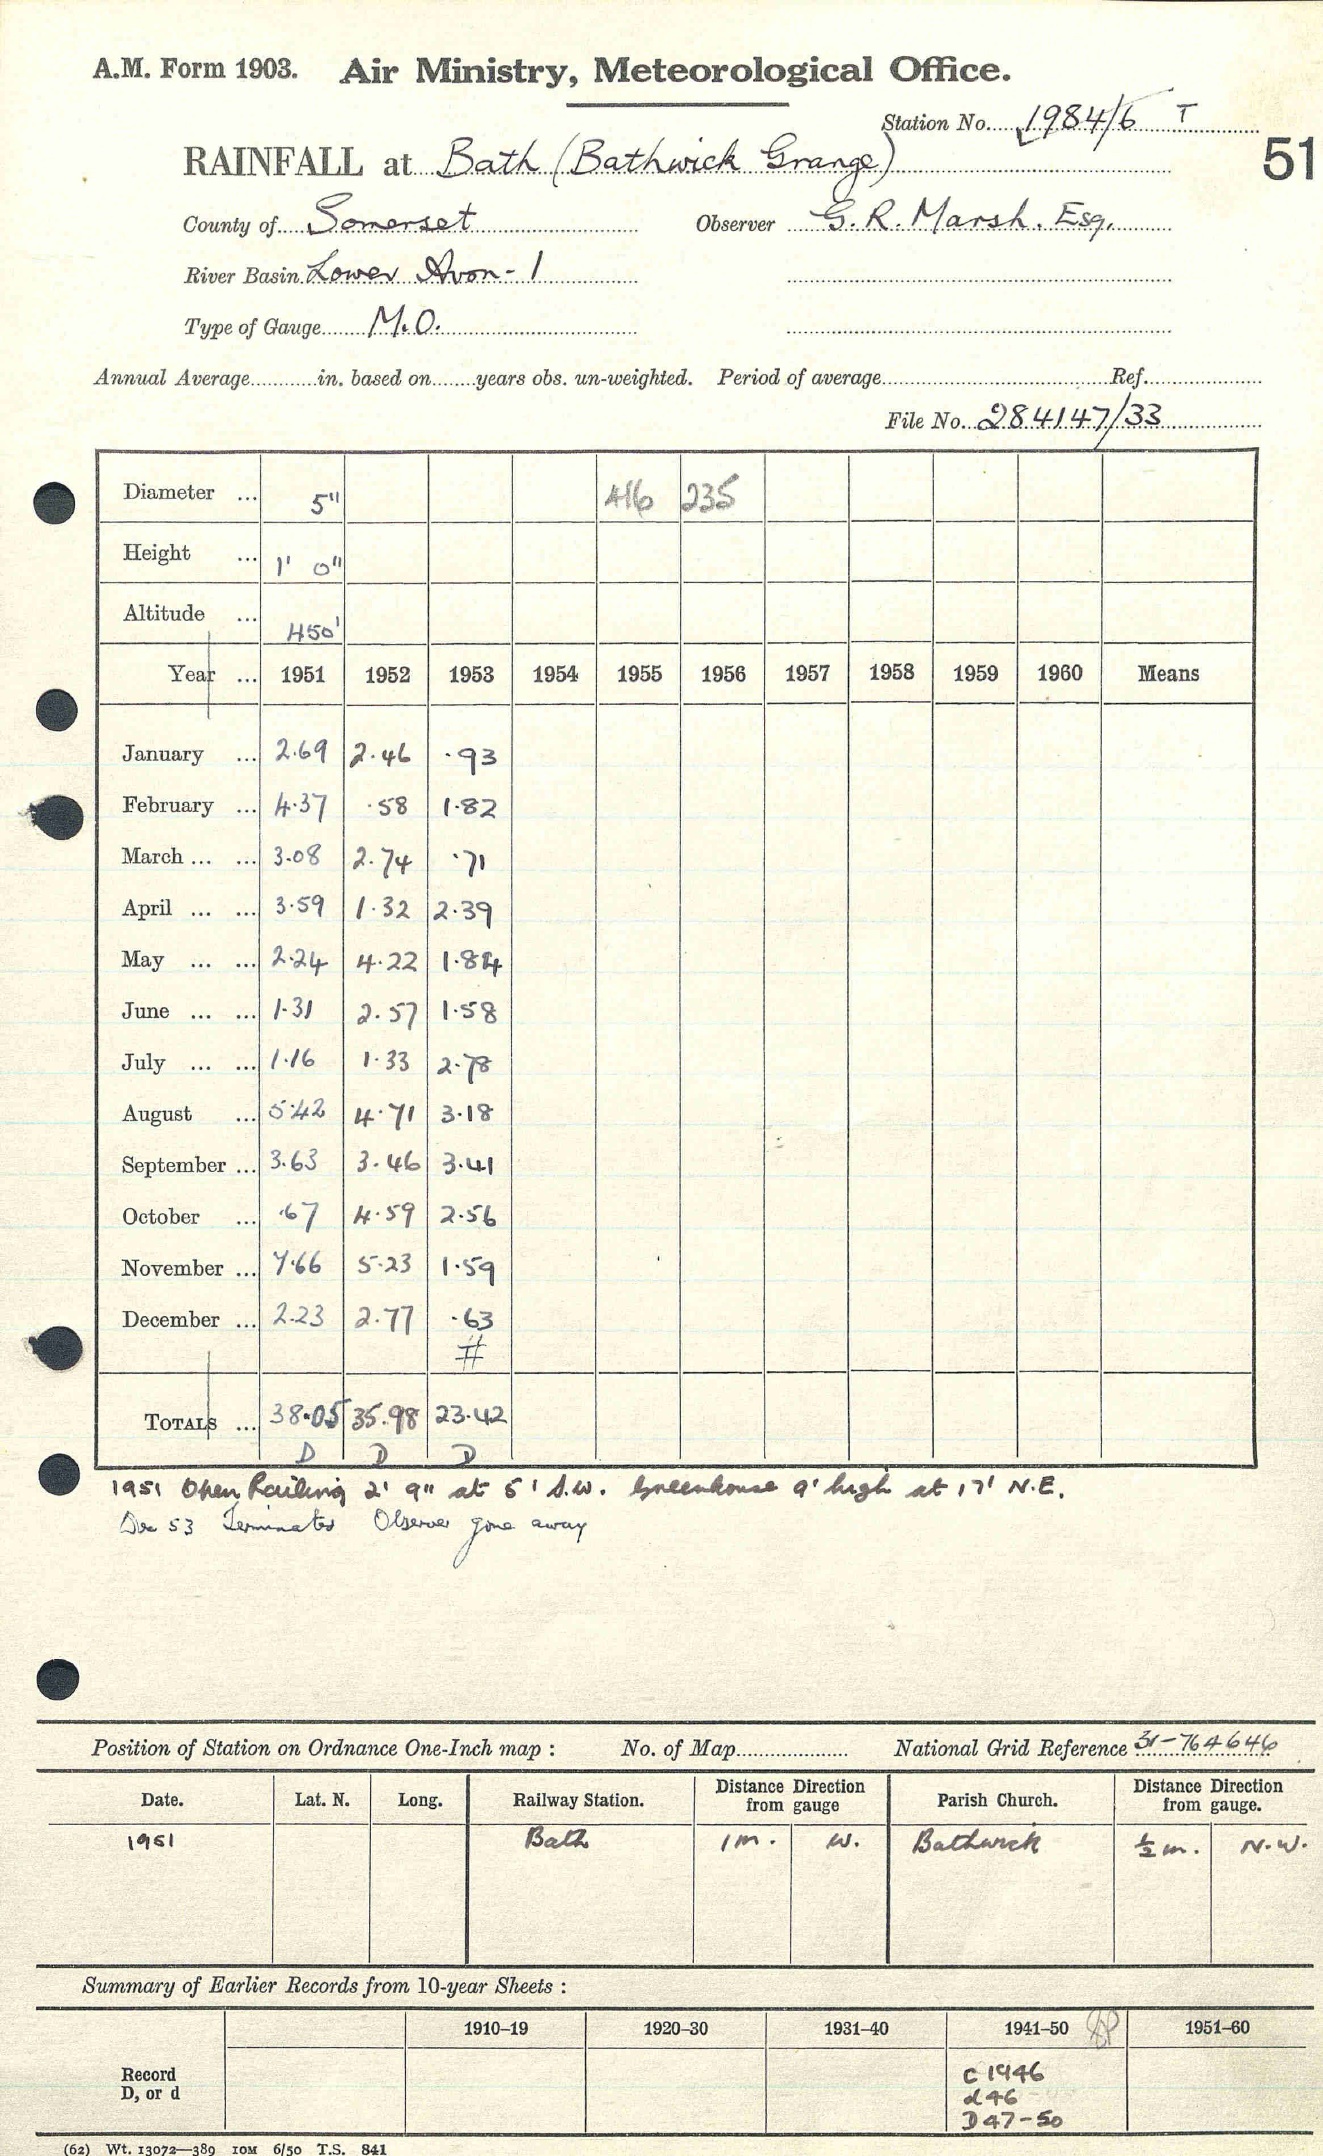 A.M. Form 1903. Air Ministry, Meteorological Office.
Station No. 1984/6 T
RAINFALL at Bath (Bathwick Grange)
51
County of Somerset Observer G. R. Marsh. Esq.
River Basin Lower Avon - 1
Type of Gauge M.O.
Annual Average in. based on years obs. un-weighted. Period of average Ref.
File No. 284147/33
Diameter ... 5" 416 235
Height ... 1' 0"
Altitude ... 450'
Year ... 1951 1952 1953 1954 1955 1956 1957 1958 1959 1960 Means
January ... 2.69 2.46 .93
February ... 4.37 .58 1.82
March ... ... 3.08 2.74 .71
April ... ... 3.59 1.32 2.39
May ... ... 2.24 4.22 1.84
June ... ... 1.31 2.57 1.58
July ... ... 1.16 1.33 2.78
August ... 5.42 4.71 3.18
September ... 3.63 3.46 3.41
October ... .67 4.59 2.56
November ... 7.66 5.23 1.59
December ... 2.23 2.77 .63
#
TOTALS ... 38.05 35.98 23.42
D D D
1951 Open Railing 2' 9" at 5' S.W. Greenhouse 9' high at 17' N.E.
Dec 53 Terminated Observer gone away
Position of Station on Ordnance One-Inch map : No. of Map National Grid Reference 31-764646
Date. Lat. N. Long. Railway Station. Distance Direction from gauge Parish Church. Distance Direction from gauge.
1951 Bath 1 m. W. Bathwick ½ m. N.W.
Summary of Earlier Records from 10-year Sheets :
1910–19 1920–30 1931–40 1941–50 1951–60
Record D, or d
C 1946
d 46
D 47-50
(62) Wt. 13072—389 10M 6/50 T.S. 841